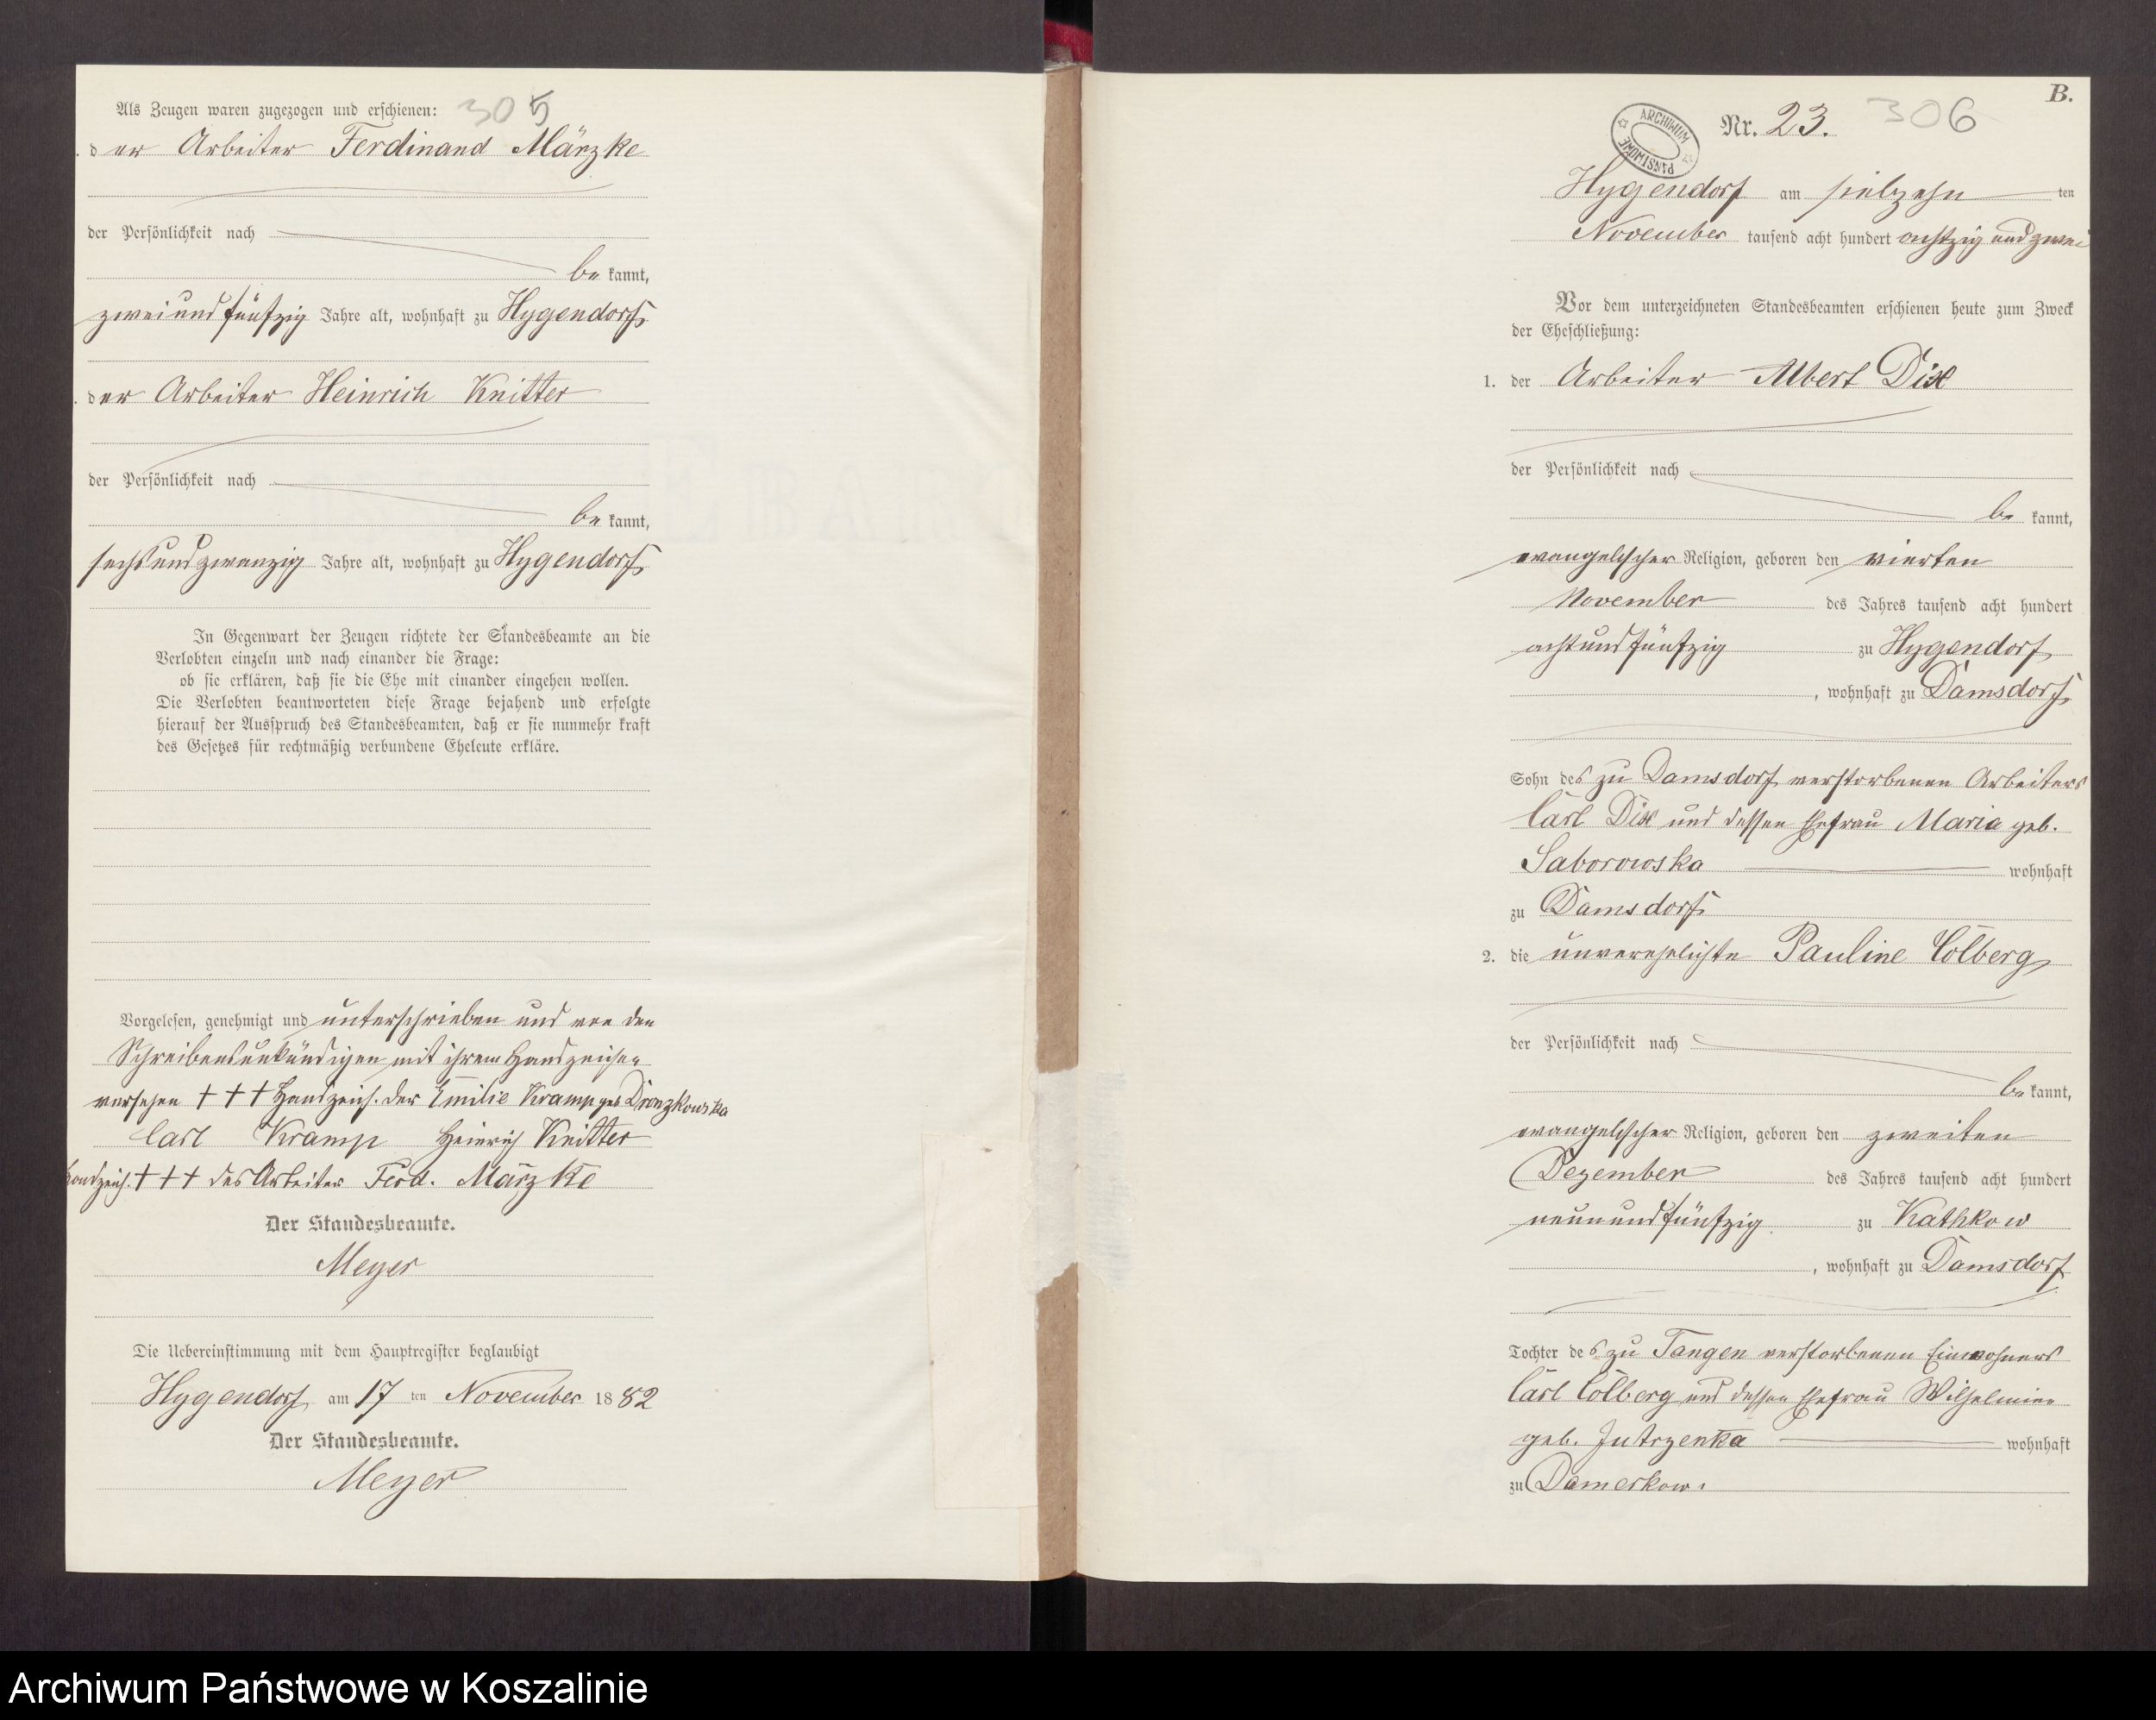 Als Zeugen waren zugezogen und erschienen: 305
der Arbeiter Ferdinand Märzke
der Persönlichkeit nach
be kannt,
zweiundfünfzig Jahre alt, wohnhaft zu Hygendorf
der Arbeiter Heinrich Knitter
der Persönlichkeit nach
be kannt,
sechsundzwanzig Jahre alt, wohnhaft zu Hygendorf
In Gegenwart der Zeugen richtete der Standesbeamte an die
Verlobten einzeln und nach einander die Frage:
ob sie erklären, daß sie die Ehe mit einander eingehen wollen.
Die Verlobten beantworteten diese Frage bejahend und erfolgte
hierauf der Ausspruch des Standesbeamten, daß er sie nunmehr kraft
des Gesetzes für rechtmäßig verbundene Eheleute erkläre.
Vorgelesen, genehmigt und unterschrieben und von den
Schreibensunkündigen mit ihrem Handzeichen
versehen +++ Handzeich. der Emilie Kramp geb Dronzkowska
Carl Kramp Heinrich Knitter
Handzeich. +++ des Arbeiter Ferd. Märzke
Der Standesbeamte.
Meyer
Die Uebereinstimmung mit dem Hauptregister beglaubigt
Hygendorf, am 17 ten November 1882
Der Standesbeamte.
Meyer
B.
Nr. 23. 306
ARCHIWUM PAŃSTWOWE
Hygendorf am siebzehn ten
November tausend acht hundert achtzig und zwei
Vor dem unterzeichneten Standesbeamten erschienen heute zum Zweck
der Eheschließung:
1. der Arbeiter Albert Dix
der Persönlichkeit nach
be kannt,
evangelischer Religion, geboren den vierten
November des Jahres tausend acht hundert
achtundfünfzig zu Hygendorf
, wohnhaft zu Damsdorf
Sohn des zu Damsdorf verstorbenen Arbeiters
Carl Dix und dessen Ehefrau Maria geb.
Saborowska wohnhaft
zu Damsdorf
2. die unverehelichte Pauline Colberg
der Persönlichkeit nach
be kannt,
evangelischer Religion, geboren den zweiten
Dezember des Jahres tausend acht hundert
neunundfünfzig zu Kathkow
, wohnhaft zu Damsdorf
Tochter des zu Tangen verstorbenen Einwohners
Carl Colberg und dessen Ehefrau Wilhelmine
geb. Jutrzenka wohnhaft
zu Damerkow.
Archiwum Państwowe w Koszalinie